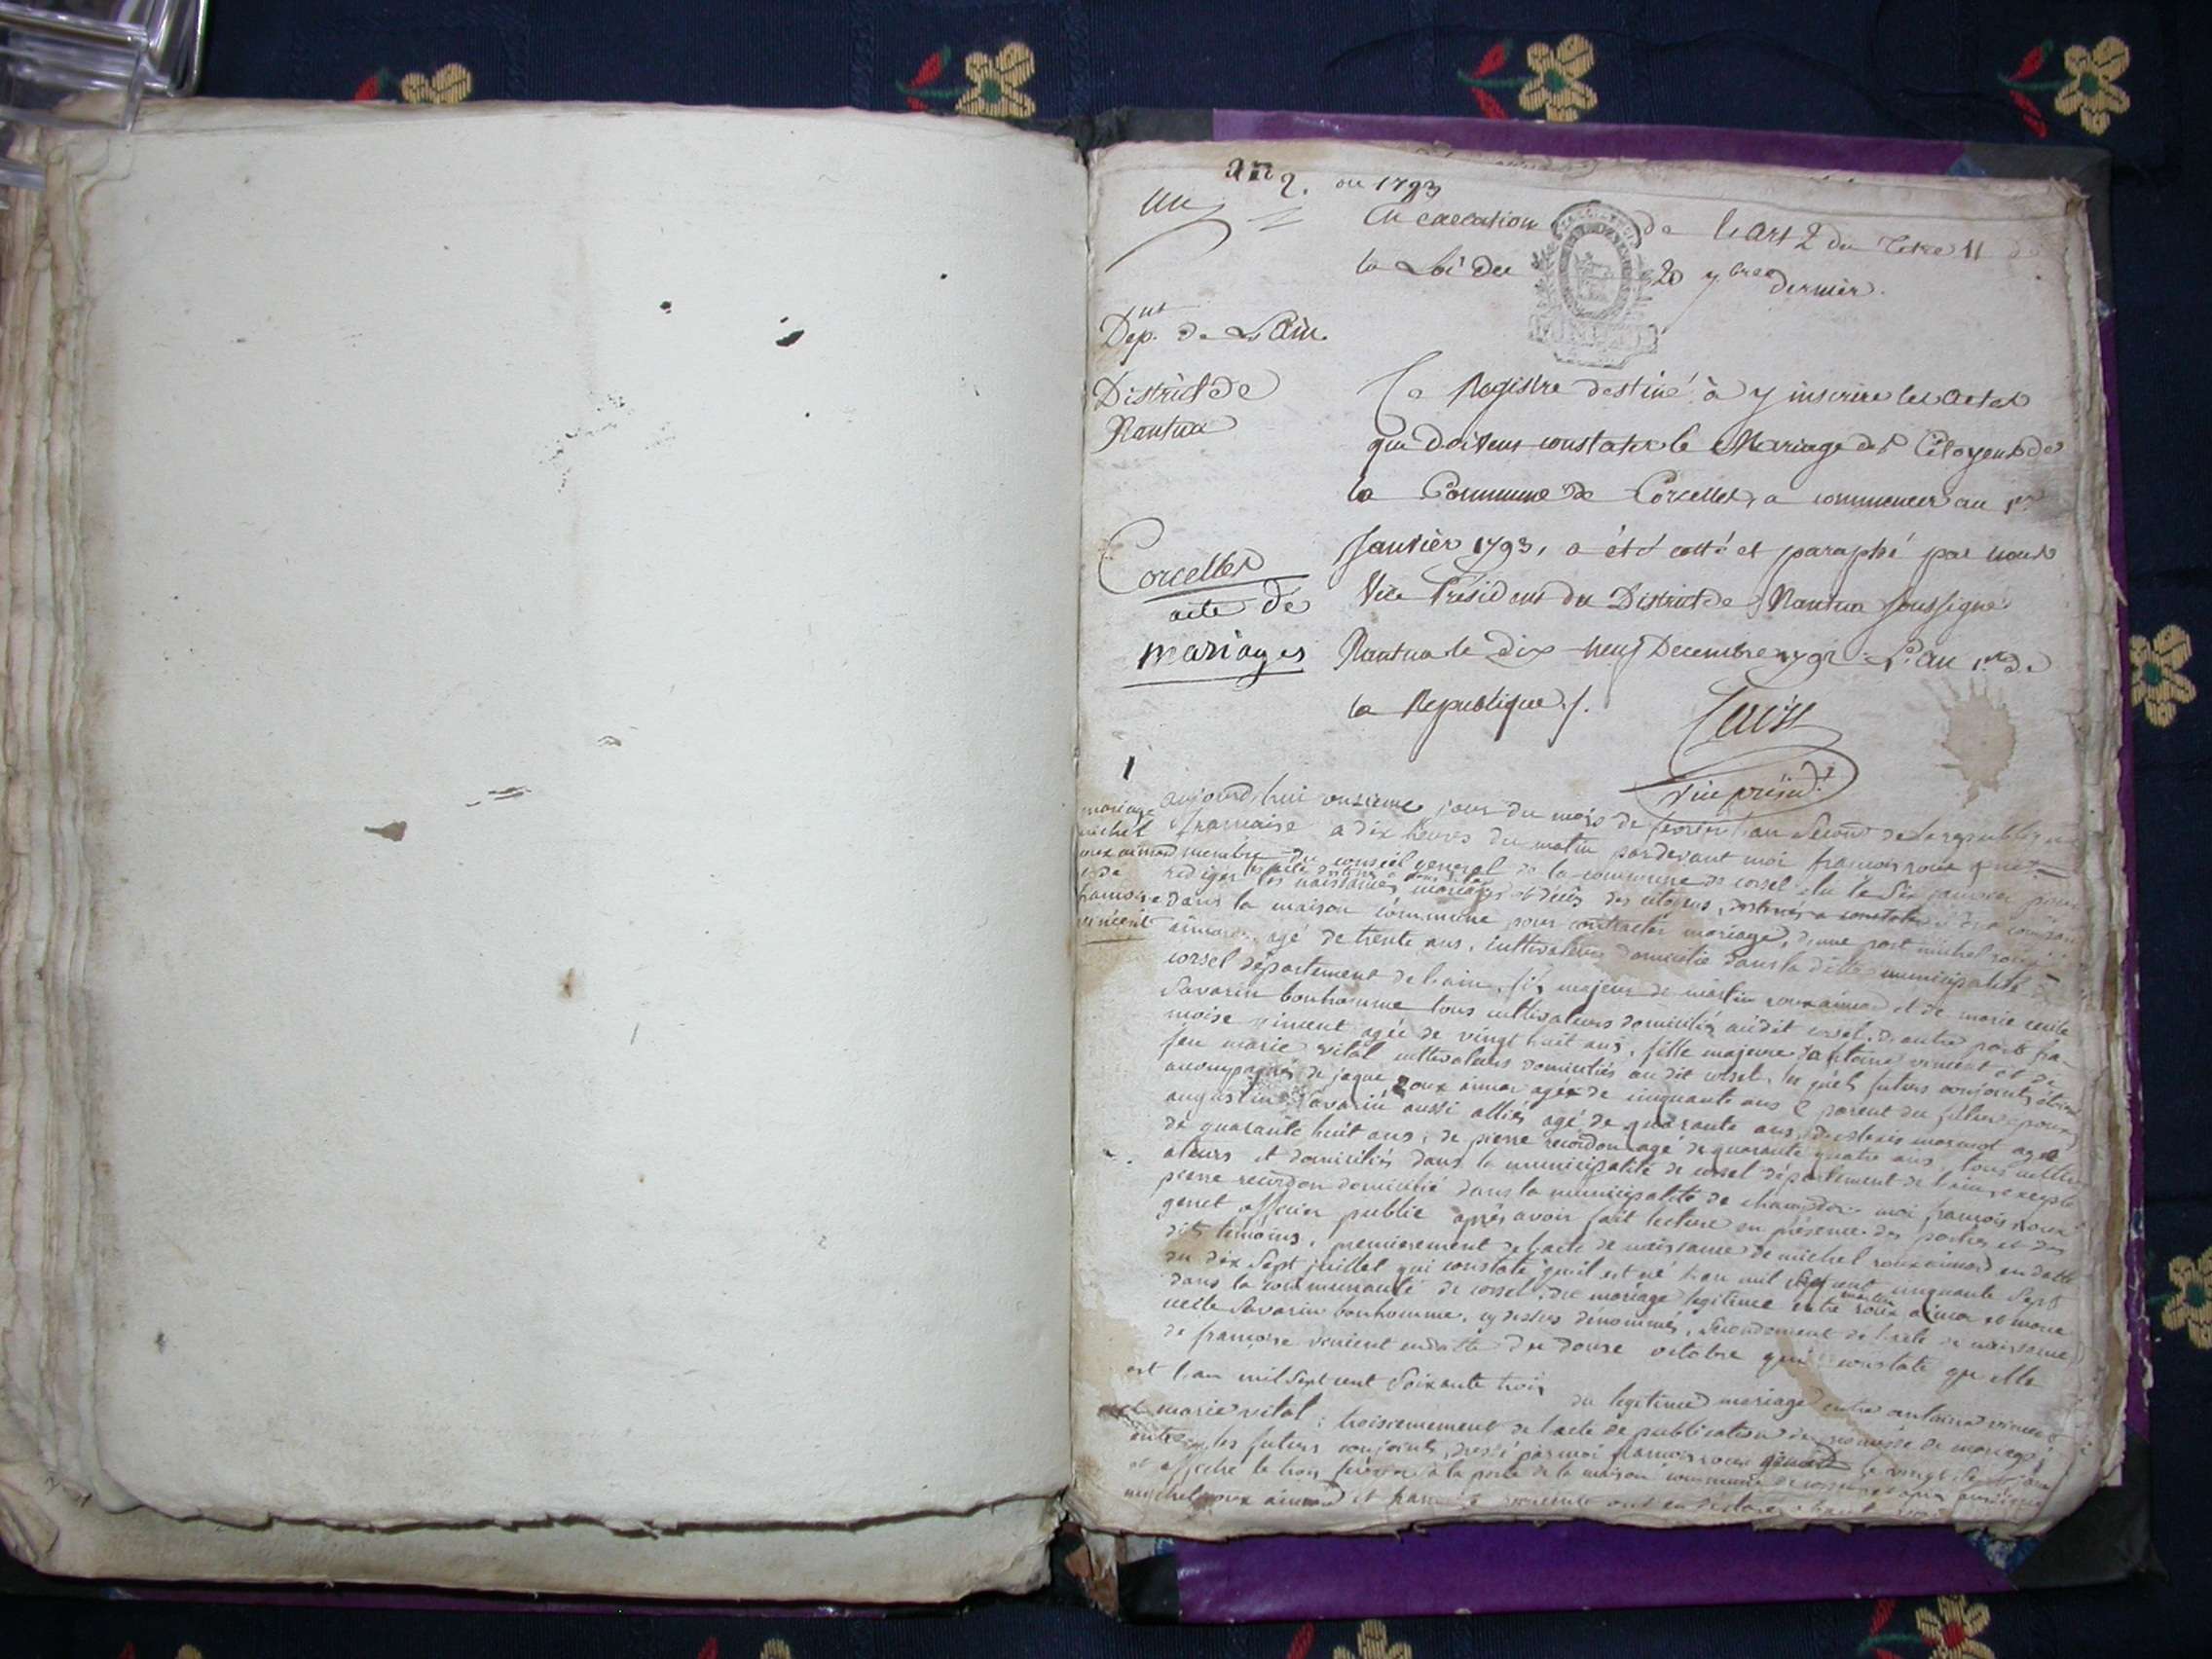 an 2. ou 1793
un
En execution de l'art 2 du titre 11 de
la Loi du 20 7bre dernier.
Dep.nt de L'Ain.
District de
Nantua
Corcelles
acte de
mariages
Ce Registre destiné à y inscrire les actes
qui doivent constater le Mariage des Citoyens de
la Commune de Corcelles, a commencer au 1er
Janvier 1793, a été cotté et paraphé par nous
Vice Président du District de Nantua soussigné
Nantua le dix neuf Decembre 1792 L'an 1er de
la Republique /.
Vice présidt
1
mariage
michel
roux aimard
de
francoise
vincent
aujourd'hui onzieme jour du mois de fevrier l'an second de la republique
francaise a dix heures du matin pardevant moi francois roux genet
membre du conseil general de la commune de corsel elu le six janvier pour
rediger les naissances mariages et décès des citoyens, destinés a constater
dans la maison commune pour contracter mariage, d'une part michel roux
aimard, agé de trente ans, cultivateur domicilié dans la ditte municipalité de
corsel département de l'ain, fils majeur de martin roux aimard et de marie cecile
Savarin bonhomme tous cultivateurs domiciliés audit corsel, d'autre part fra-
moise vincent agée de vingt huit ans, fille majeure d'antoine vincent et de
feu marie vital cultivateurs domiciliés audit corsel, les quels futurs conjoints étoient
accompagnés de jaque roux aimar agée de cinquante ans parent du futur epoux
augustin Savarin aussi alliés agé de quarante ans, d'alexis marmot agé
de quarante huit ans, de pierre recordon agé de quarante quatre ans, tous cultiv
ateurs et domiciliés dans la municipalité de corsel département de l'ain, excepté
pierre recordon domicilié dans la municipalité de champdor moi francois roux
genet officier public après avoir fait lecture en présence des parties et des
dits témoins, premierement de l'acte de naissance de michel roux aimard en datte
du dix Sept juillet qui constate qu'il est né l'an mil sept cent cinquante Sept
dans la communauté de corsel, du mariage legitime entre martin roux aimar et marie
cecile Savarin bonhomme, cy dessus dénommés, Secondement de l'acte de naissance
de françoise vincent en datte du douse octobre qui constate qu'elle
est l'an mil Sept cent Soixante trois du legitime mariage entre antoine vincent
et marie vital : troisiemement de l'acte de publication de promesse de mariage
entre les futurs conjoints dressé par moi francois roux genet le vingt Sept
et affiché le trois fevrier a la porte de la maison commune de
michel roux aimard et francoise vincent ont